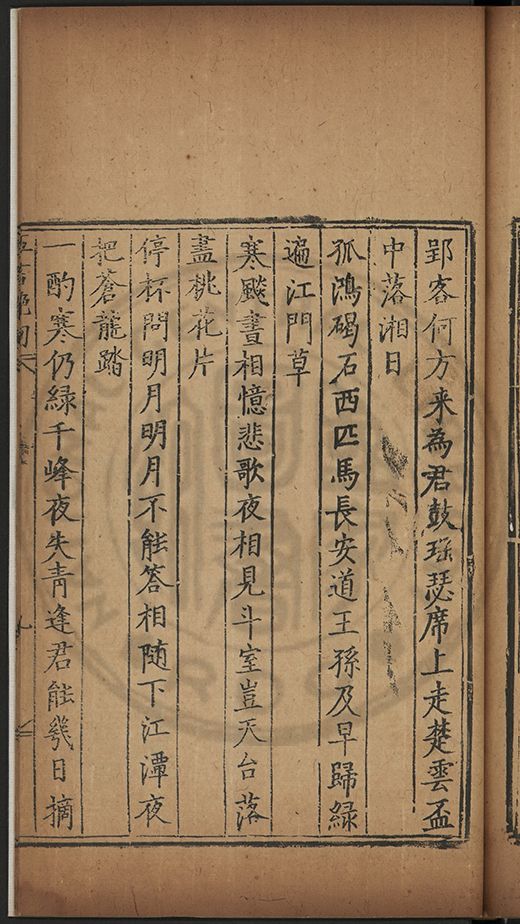 郢客何方来為君鼓瑶瑟席上走楚雲盃
中落湘日
孤鴻碣石西匹馬長安道王孫及早歸緑
遍江門草
寒飈晝相憶悲歌夜相見斗室豈天台落
盡桃花片
停杯問明月明月不能答相随下江潭夜
把蒼龍踏
一酌寒仍緑千峰夜失青逢君能幾日摘